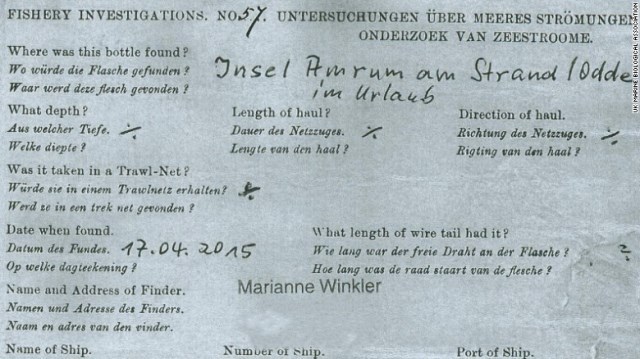 FISHERY INVESTIGATIONS. NO 57. UNTERSUCHUNGEN ÜBER MEERES STRÖMUNGEN
ONDERZOEK VAN ZEESTROOME.
Where was this bottle found?
Wo würde die Flasche gefunden?
Waar werd deze flesch gevonden?
Insel Amrum am Strand/Odde
im Urlaub
What depth?
Aus welcher Tiefe. ./.
Welke diepte?
Length of haul?
Dauer des Netzzuges. ./.
Lengte van den haal?
Direction of haul.
Richtung des Netzzuges. ./.
Rigting van den haal?
Was it taken in a Trawl-Net?
Würde sie in einem Trawlnetz erhalten? ./.
Werd ze in een trek net gevonden?
Date when found.
Datum des Fundes. 17.04.2015
Op welke dagteekening?
What length of wire tail had it?
Wie lang war der freie Draht an der Flasche? ?
Hoe lang was de raad staart van de flesche?
Name and Address of Finder.
Namen und Adresse des Finders.
Naam en adres van den vinder.
Marianne Winkler
Name of Ship.
Number of Ship.
Port of Ship.
UK MARINE BIOLOGICAL ASSOCIATION